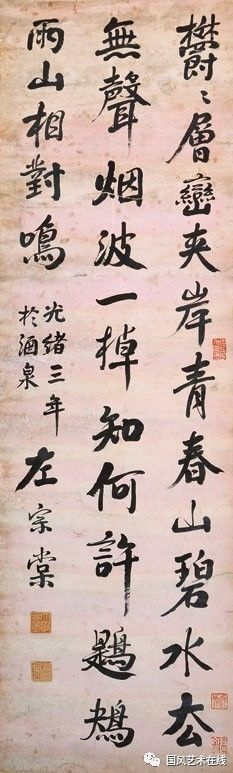 欝〻層巒夾岸青春山碧水去
無聲烟波一棹知何許鶗鴂
兩山相對鳴
光緒三年
於酒泉
左宗棠
国风艺术在线